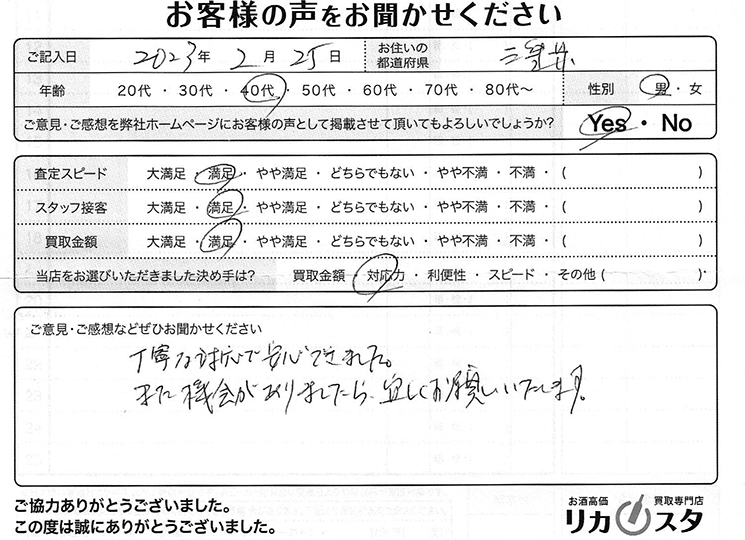 お客様の声をお聞かせください
ご記入日 2023年 2月 25日 お住いの都道府県
年齢 20代・30代・40代・50代・60代・70代・80代〜 性別 男・女
ご意見・ご感想を弊社ホームページにお客様の声として掲載させて頂いてもよろしいでしょうか? Yes・No
査定スピード 大満足・満足・やや満足・どちらでもない・やや不満・不満・( )
スタッフ接客 大満足・満足・やや満足・どちらでもない・やや不満・不満・( )
買取金額 大満足・満足・やや満足・どちらでもない・やや不満・不満・( )
当店をお選びいただきました決め手は? 買取金額・対応力・利便性・スピード・その他( )
ご意見・ご感想などぜひお聞かせください
丁寧な対応で安心できました。
また機会がありましたら、宜しくお願いいたします。
ご協力ありがとうございました。
この度は誠にありがとうございました。
お酒高価 買取専門店
リカスタ